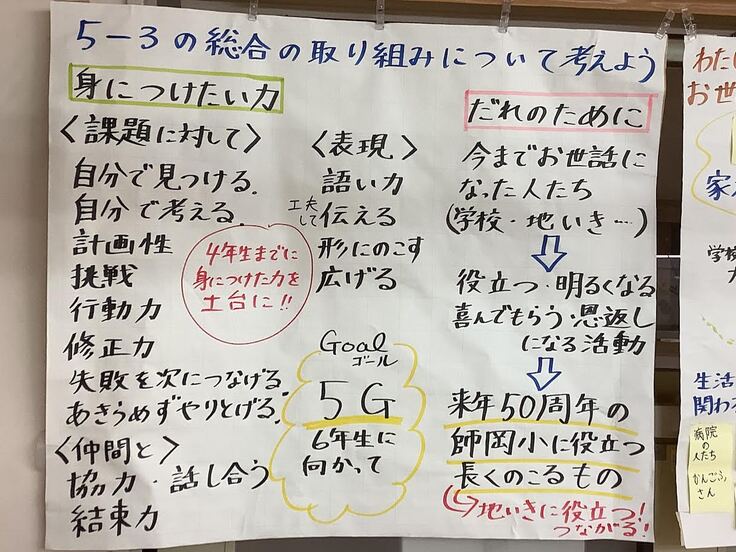 5-3の総合の取り組みについて考えよう
身につけたい力
〈課題に対して〉
自分で見つける。
自分で考える。
計画性
挑戦
行動力
修正力
失敗を次につなげる。
あきらめずやりとげる。
〈仲間と〉
協力・話し合う
結束力
4年生までに
身につけた力を
土台に!!
〈表現〉
語い力
工夫して伝える
形にのこす
広げる
Goal
ゴール
5G
6年生に
向かって
だれのために
今までお世話に
なった人たち
(学校・地いき…)
役立つ・明るくなる
喜んでもらう・恩返し
になる活動
来年50周年の
師岡小に役立つ
長くのこるもの
地いきに役立つ!
つながる!
わた
お世
家
学校
生活
関わ
病院
の
人たち
かんごふ
さん